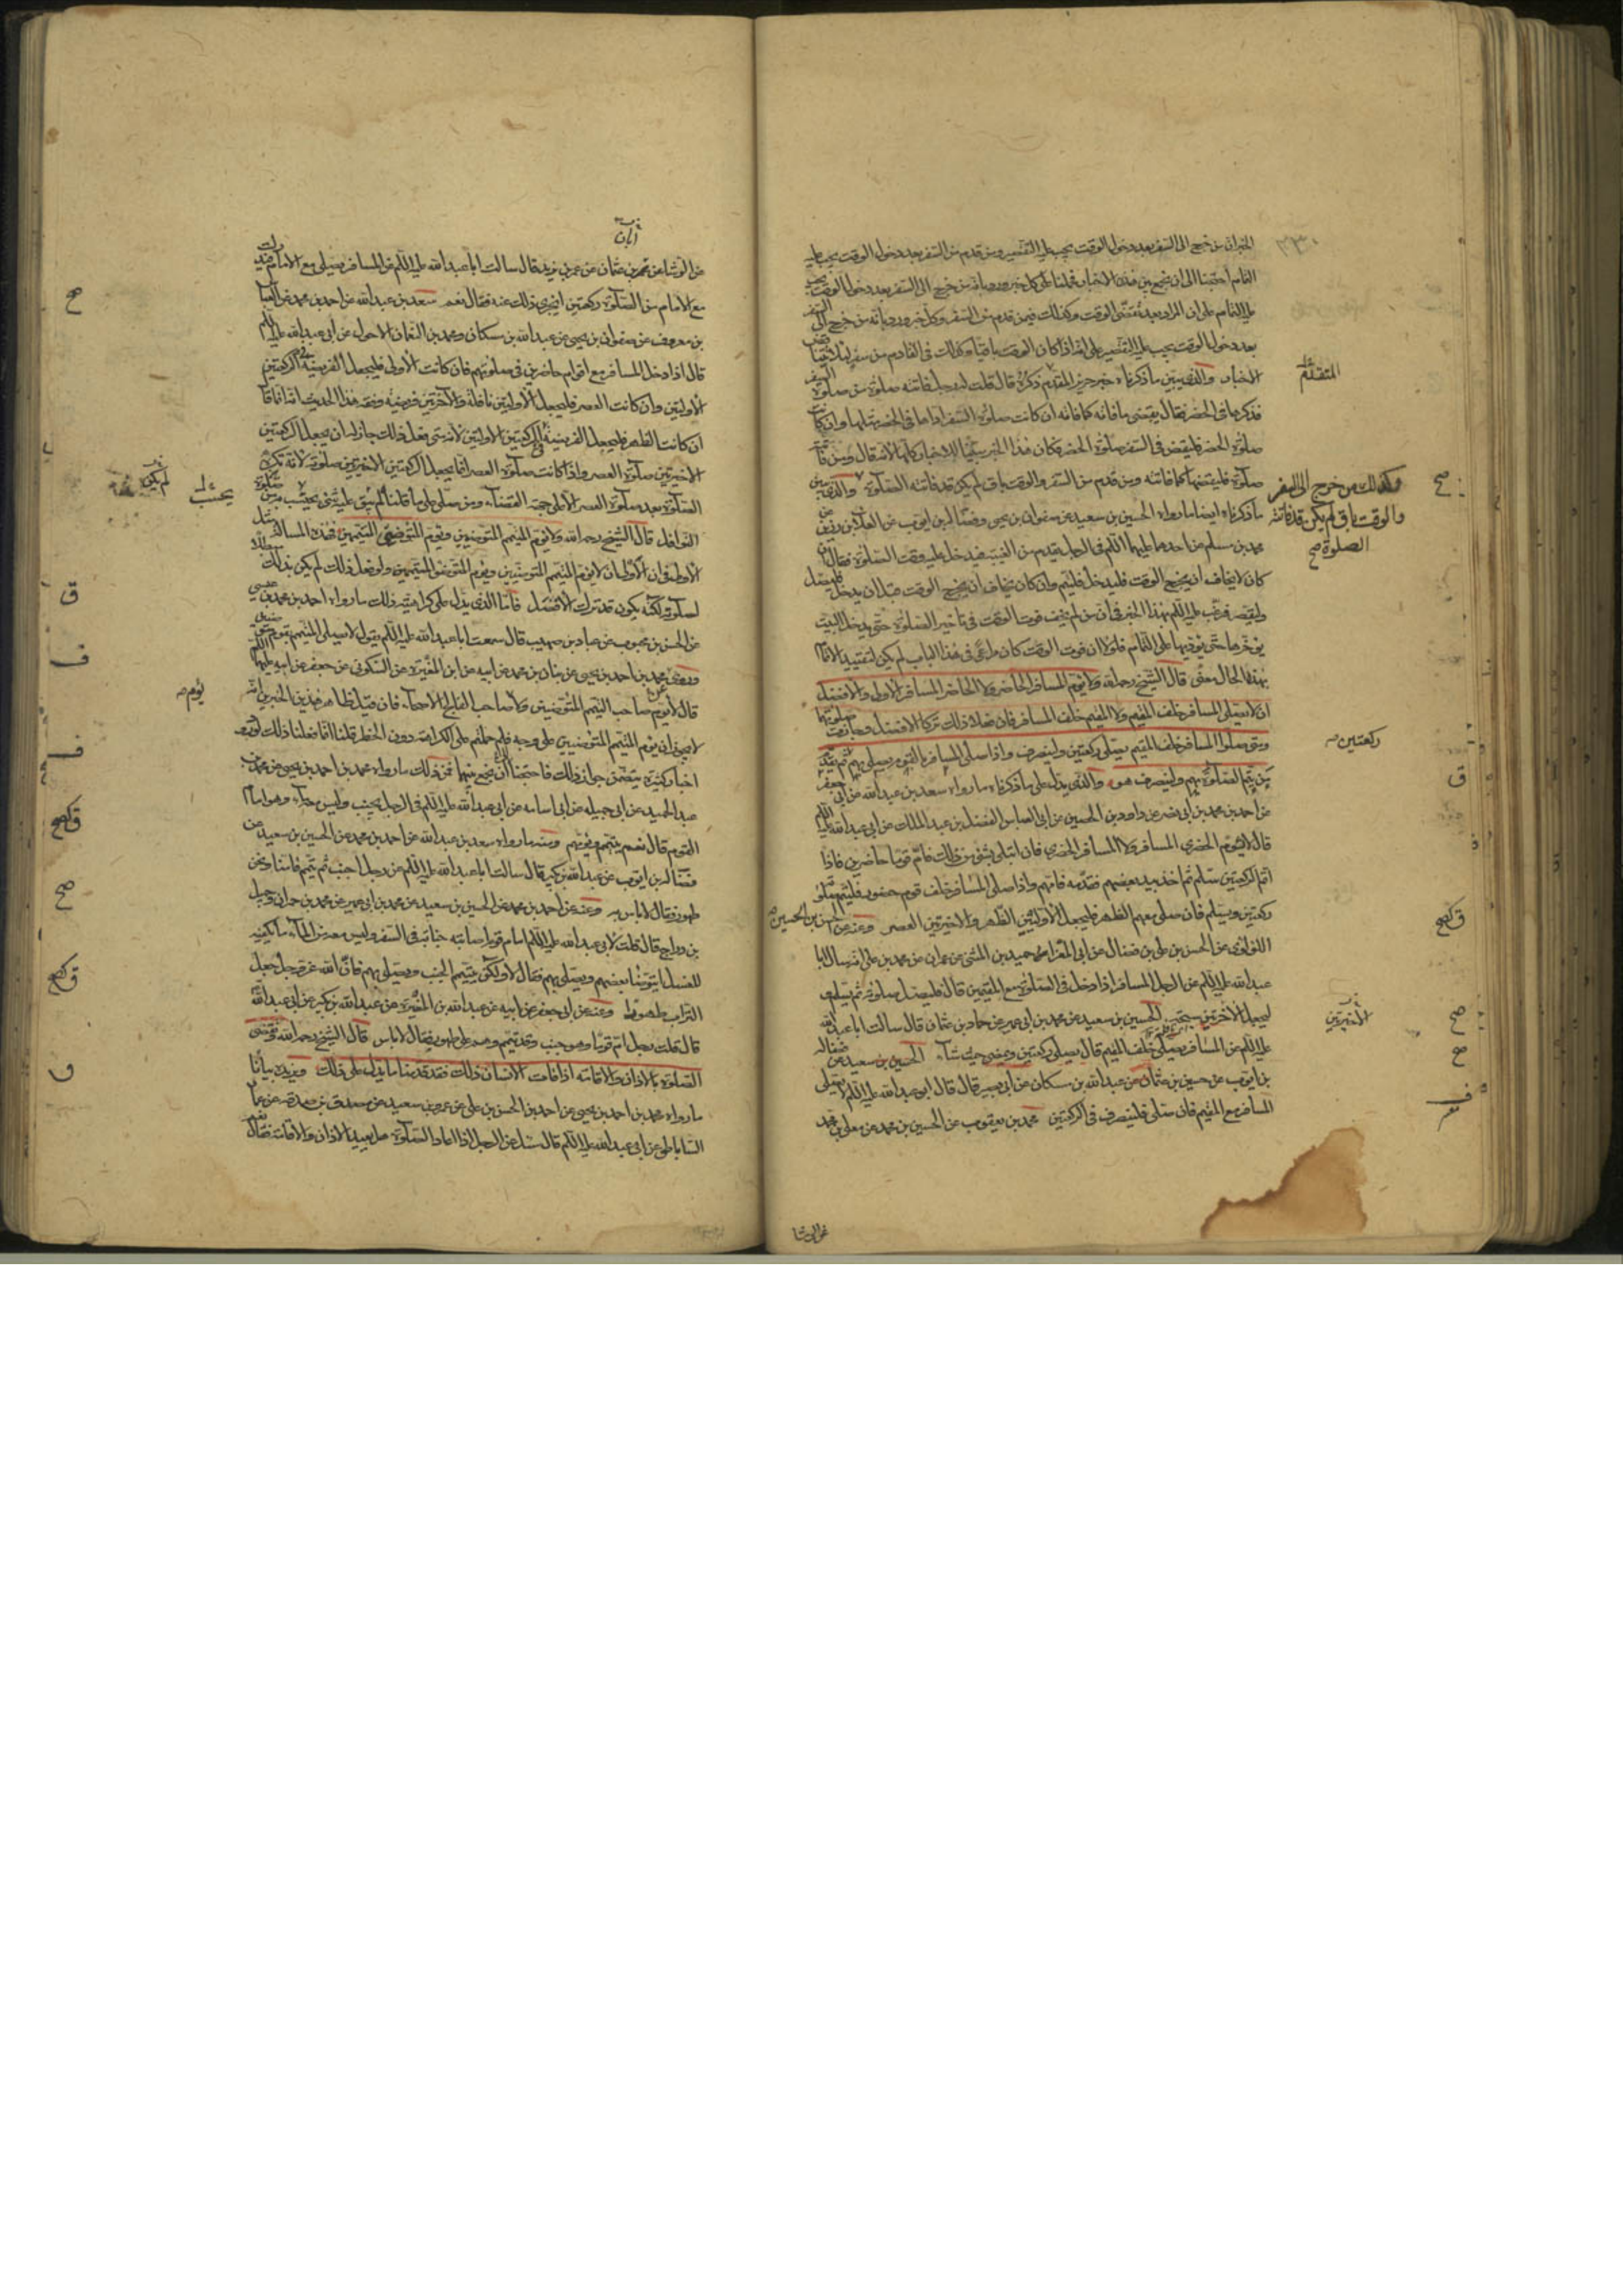 الخبران من خرج الى السفر بعد دخول الوقت يجب عليه التقصير ومن قدم من السفر بعد دخول الوقت يجب عليه
التمام احتجنا الى ان نجمع بين هذه الاخبار فحملنا على كل خبر ورد بانه من خرج الى السفر بعد دخول الوقت يجب
عليه التمام على ان المراد بعد تقضى الوقت وكذلك فيمن قدم من السفر وكل خبر ورد بانه من خرج الى السفر
بعد دخول الوقت يجب عليه التقصير على انه اذا كان الوقت باقيا وكذلك فى القادم من سفر لئلا
الاخبار والذى يبين ما ذكرناه خبر حريز المقدم ذكره قال قلت له رجل فاتته صلوة من صلوة السفر
فذكرها فى الحضر فقال يقضى ما فاته كما فاته ان كانت صلوة السفر اداها فى الحضر مثلها وان كانت
صلوة الحضر فليقض فى السفر صلوة الحضر فكان هذا الخبر للاخبار كلها لانه قال ومن فاتته
صلوة فليقضها كما فاتته ومن قدم من السفر والوقت باق لم يكن قد فاتته الصلوة والذى يبين
ما ذكرناه ايضا ما رواه الحسين بن سعيد عن صفوان بن يحيى وفضالة بن ايوب عن العلا بن رزين عن
محمد بن مسلم عن احدهما عليهما السلام فى الرجل يقدم من الغيبة فيدخل عليه وقت الصلوة فقال ان
كان لا يخاف ان يخرج الوقت فليدخل فليتم وان كان يخاف ان يخرج الوقت قبل ان يدخل فليصل
وليقصر فرتب عليه السلام بهذا الخبر فى ان من لم يخف فوت الوقت فى تاخير الصلوة حتى يدخل البيت
يؤخرها حتى يؤديها على التمام فلولا ان فوت الوقت كان مراعى فى هذا الباب لم يكن لتقييد الاتمام
بهذا الحال معنى قال الشيخ رحمه الله ولا يؤم المسافر الحاضر ولا الحاضر المسافر الاولى والافضل
ان لا يصلى المسافر خلف المقيم ولا المقيم خلف المسافر فان فعلا ذلك تركا الافضل وجازت صلوتهما
ومتى صلى المسافر خلف المقيم يصلى ركعتين ولينصرف واذا صلى المسافر بالقوم يصلى بهم ثم يقدم
من يتم الصلوة بهم ولينصرف هو والذى يدل على ما ذكرناه ما رواه سعد بن عبد الله عن ابى جعفر
عن احمد بن محمد بن ابى نصر عن داود بن الحصين عن ابى العباس الفضل بن عبد الملك عن ابى عبد الله عليه السلام
قال لا يؤم الحضرى المسافر ولا المسافر الحضرى فان ابتلى بشئ من ذلك فام قوما حاضرين فاذا
اتم الركعتين سلم ثم اخذ بيد بعضهم فقدمه فامهم واذا صلى المسافر خلف قوم حضور فليتم صلوته
ركعتين ويسلم فان صلى معهم الظهر فليجعل الاولتين الظهر والاخيرتين العصر وعنه عن الحسن بن الحسين
اللؤلؤى عن الحسن بن على بن فضال عن ابى المغرا حميد بن المثنى عن عمران عن محمد بن على انه سال ابا
عبد الله عليه السلام عن الرجل المسافر اذا دخل فى الصلوة مع المقيمين قال فليصل صلوته ثم يسلم
ليجعل الاخرتين سبحة الحسين بن سعيد عن محمد بن ابى عمير عن حماد بن عثمان قال سالت ابا عبد الله
عليه السلام عن المسافر يصلى خلف المقيم قال يصلى ركعتين ويمضى حيث شاء الحسين بن سعيد عن فضالة
بن ايوب عن حسين بن عثمان عن عبد الله بن مسكان عن ابى بصير قال قال ابو عبد الله عليه السلام لا يصلى
المسافر مع المقيم فان صلى فلينصرف فى الركعتين محمد بن يعقوب عن الحسين بن محمد عن معلى بن محمد
المتقدم
وكذلك من خرج الى السفر
والوقت باق لم يكن قد فاتته
الصلوة صح
ركعتين
الاخيرتين
ابان
عن الوشا عن محمد بن عثمان عن عمر بن يزيد قال سالت ابا عبد الله عليه السلام عن المسافر يصلى مع الامام فيدرك
مع الامام من الصلوة ركعتين ايجزى ذلك عنه فقال نعم سعد بن عبد الله عن احمد بن محمد عن العباس
بن معروف عن صفوان بن يحيى عن عبد الله بن مسكان ومحمد بن النعمان الاحول عن ابى عبد الله عليه السلام
قال اذا دخل المسافر مع اقوام حاضرين فى صلوتهم فان كانت الاولى فليجعل الفريضة فى الركعتين
الاوليين وان كانت العصر فليجعل الاوليين نافلة والاخرتين فريضة وفقه هذا الحديث انه انما قال
ان كانت الظهر فليجعل الفريضة فى الركعتين الاوليين لانه متى فعل ذلك جاز له ان يجعل الركعتين
الاخيرتين صلوة العصر واذا كانت صلوة العصر انما يجعل الركعتين الاخيرتين صلوته لانه تكره
الصلوة بعد صلوة العصر الا على جهة القضاء ومن صلى على ما قلناه لم يبق عليه شئ يحتسب به من صلوة
النوافل قال الشيخ رحمه الله ولا يؤم المتيمم المتوضيين ويؤم المتوضى المتيممين فهذه المسالة مثل
الاولى فى ان الاولى ان لا يؤم المتيمم المتوضيين ويؤم المتوضى المتيممين ولو فعل ذلك لم يكن بذلك مبطلا
لصلوته لكنه يكون قد ترك الافضل فاما الذى يدل على كراهيته ذلك ما رواه احمد بن محمد بن عيسى
عن الحسن بن محبوب عن عباد بن صهيب قال سمعت ابا عبد الله عليه السلام يقول لا يصلى المتيمم بقوم متوضين
وروى محمد بن احمد بن يحيى عن بنان بن محمد عن ابيه عن ابن المغيرة عن السكونى عن جعفر عن ابيه عليهما السلام
قال لا يؤم صاحب التيمم المتوضين ولا صاحب الفالج الاصحاء فان قيل ظاهر هذين الخبرين انه
لا يجوز ان يؤم المتيمم المتوضيين على وجه فلم حملتم على الكراهة دون الحظر قلنا انما فعلنا ذلك لورود
اخبار كثيرة يتضمن جواز ذلك فاحتجنا ان نجمع بينها فمن ذلك ما رواه محمد بن احمد بن يحيى عن محمد بن
عبد الحميد عن ابى جميلة عن ابى اسامة عن ابى عبد الله عليه السلام فى الرجل يجنب وليس معه ماء وهو امام
القوم قال نعم يتيمم ويؤمهم ومنه ما رواه سعد بن عبد الله عن احمد بن محمد عن الحسين بن سعيد عن
فضالة بن ايوب عن عبد الله بن بكير قال سالت ابا عبد الله عليه السلام عن رجل اجنب ثم تيمم فامنا ونحن
طهور فقال لا باس به وعنه عن احمد بن محمد عن الحسين بن سعيد عن محمد بن ابى عمير عن محمد بن حمران وجميل
بن دراج قال قلت لابى عبد الله عليه السلام امام قوم اصابته جنابة فى السفر وليس معه من الماء ما يكفيه
للغسل ايتوضأ بعضهم ويصلى بهم فقال لا ولكن يتيمم الجنب ويصلى بهم فان الله عز وجل جعل
التراب طهورا وعنه عن ابى جعفر عن ابيه عن عبد الله بن المغيرة عن عبد الله بن بكير عن ابى عبد الله
قال قلت رجل ام قوما وهو جنب وقد تيمم وهم على طهور فقال لا باس قال الشيخ رحمه الله وتقضى
الصلوة بالاذان والاقامة اذا فاتت الانسان ذلك فقد قدمنا ما يدل على ذلك ويزيده بيانا
ما رواه محمد بن احمد بن يحيى عن احمد بن الحسن بن على عن عمرو بن سعيد عن مصدق بن صدقة عن عمار
الساباطى عن ابى عبد الله عليه السلام قال سئل عن الرجل اذا اعاد الصلوة هل يعيد الاذان والاقامة فقال نعم
لم يكن
يحتسب
يؤم